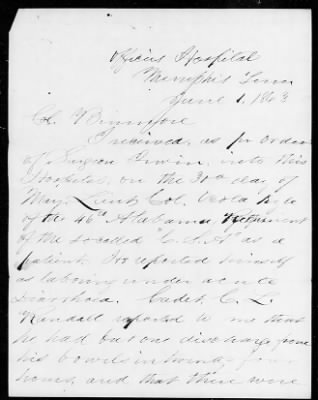 Officers Hospital
Memphis Tenn
June 1. 1863
Col. Binmore
I received, as per order
of Surgeon Irwin, into this
Hospital, on the 31st day of
May. Lieut. Col. Osceola Kyle
of the 46th Alabama Regiment
of the socalled "C.S.A" as a
patient. He reported himself
as laboring under acute
Diarrhoea. Cadet, C. L.
Kendall reported to me that
he had but one discharge from
his bowels in twenty-four
hours, and that there were